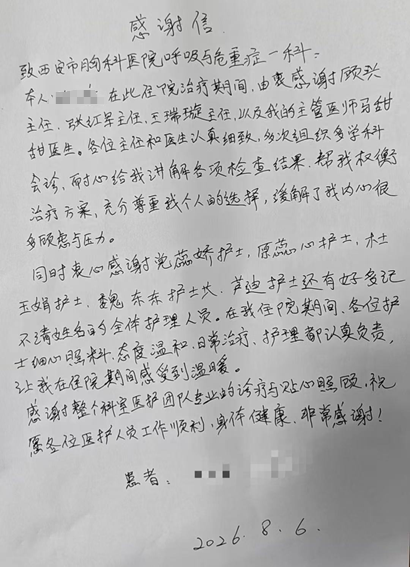 感谢信
致西安市胸科医院呼吸与危重症一科:
本人 在此住院治疗期间,由衷感谢顾兴
主任、张红军主任、王瑞璇主任,以及我的主管医师马甜
甜医生。各位主任和医生认真细致,多次组织多学科
会诊,耐心给我讲解各项检查结果,帮我权衡
治疗方案,充分尊重我个人的选择,缓解了我内心很
多顾虑与压力。
同时衷心感谢党蕊娇护士,原蕊心护士,
玉娟护士、魏东东护士长、芦迪护士还有好多记
不清姓名的全体护理人员。在我住院期间、各位护
士细心照料、态度温和、日常治疗、护理都认真负责,
让我在住院期间感受到温暖。
感谢整个科室医护团队专业的诊疗与贴心照顾,祝
愿各位医护人员工作顺利,身体健康、非常感谢!
患者:
2026.8.6.